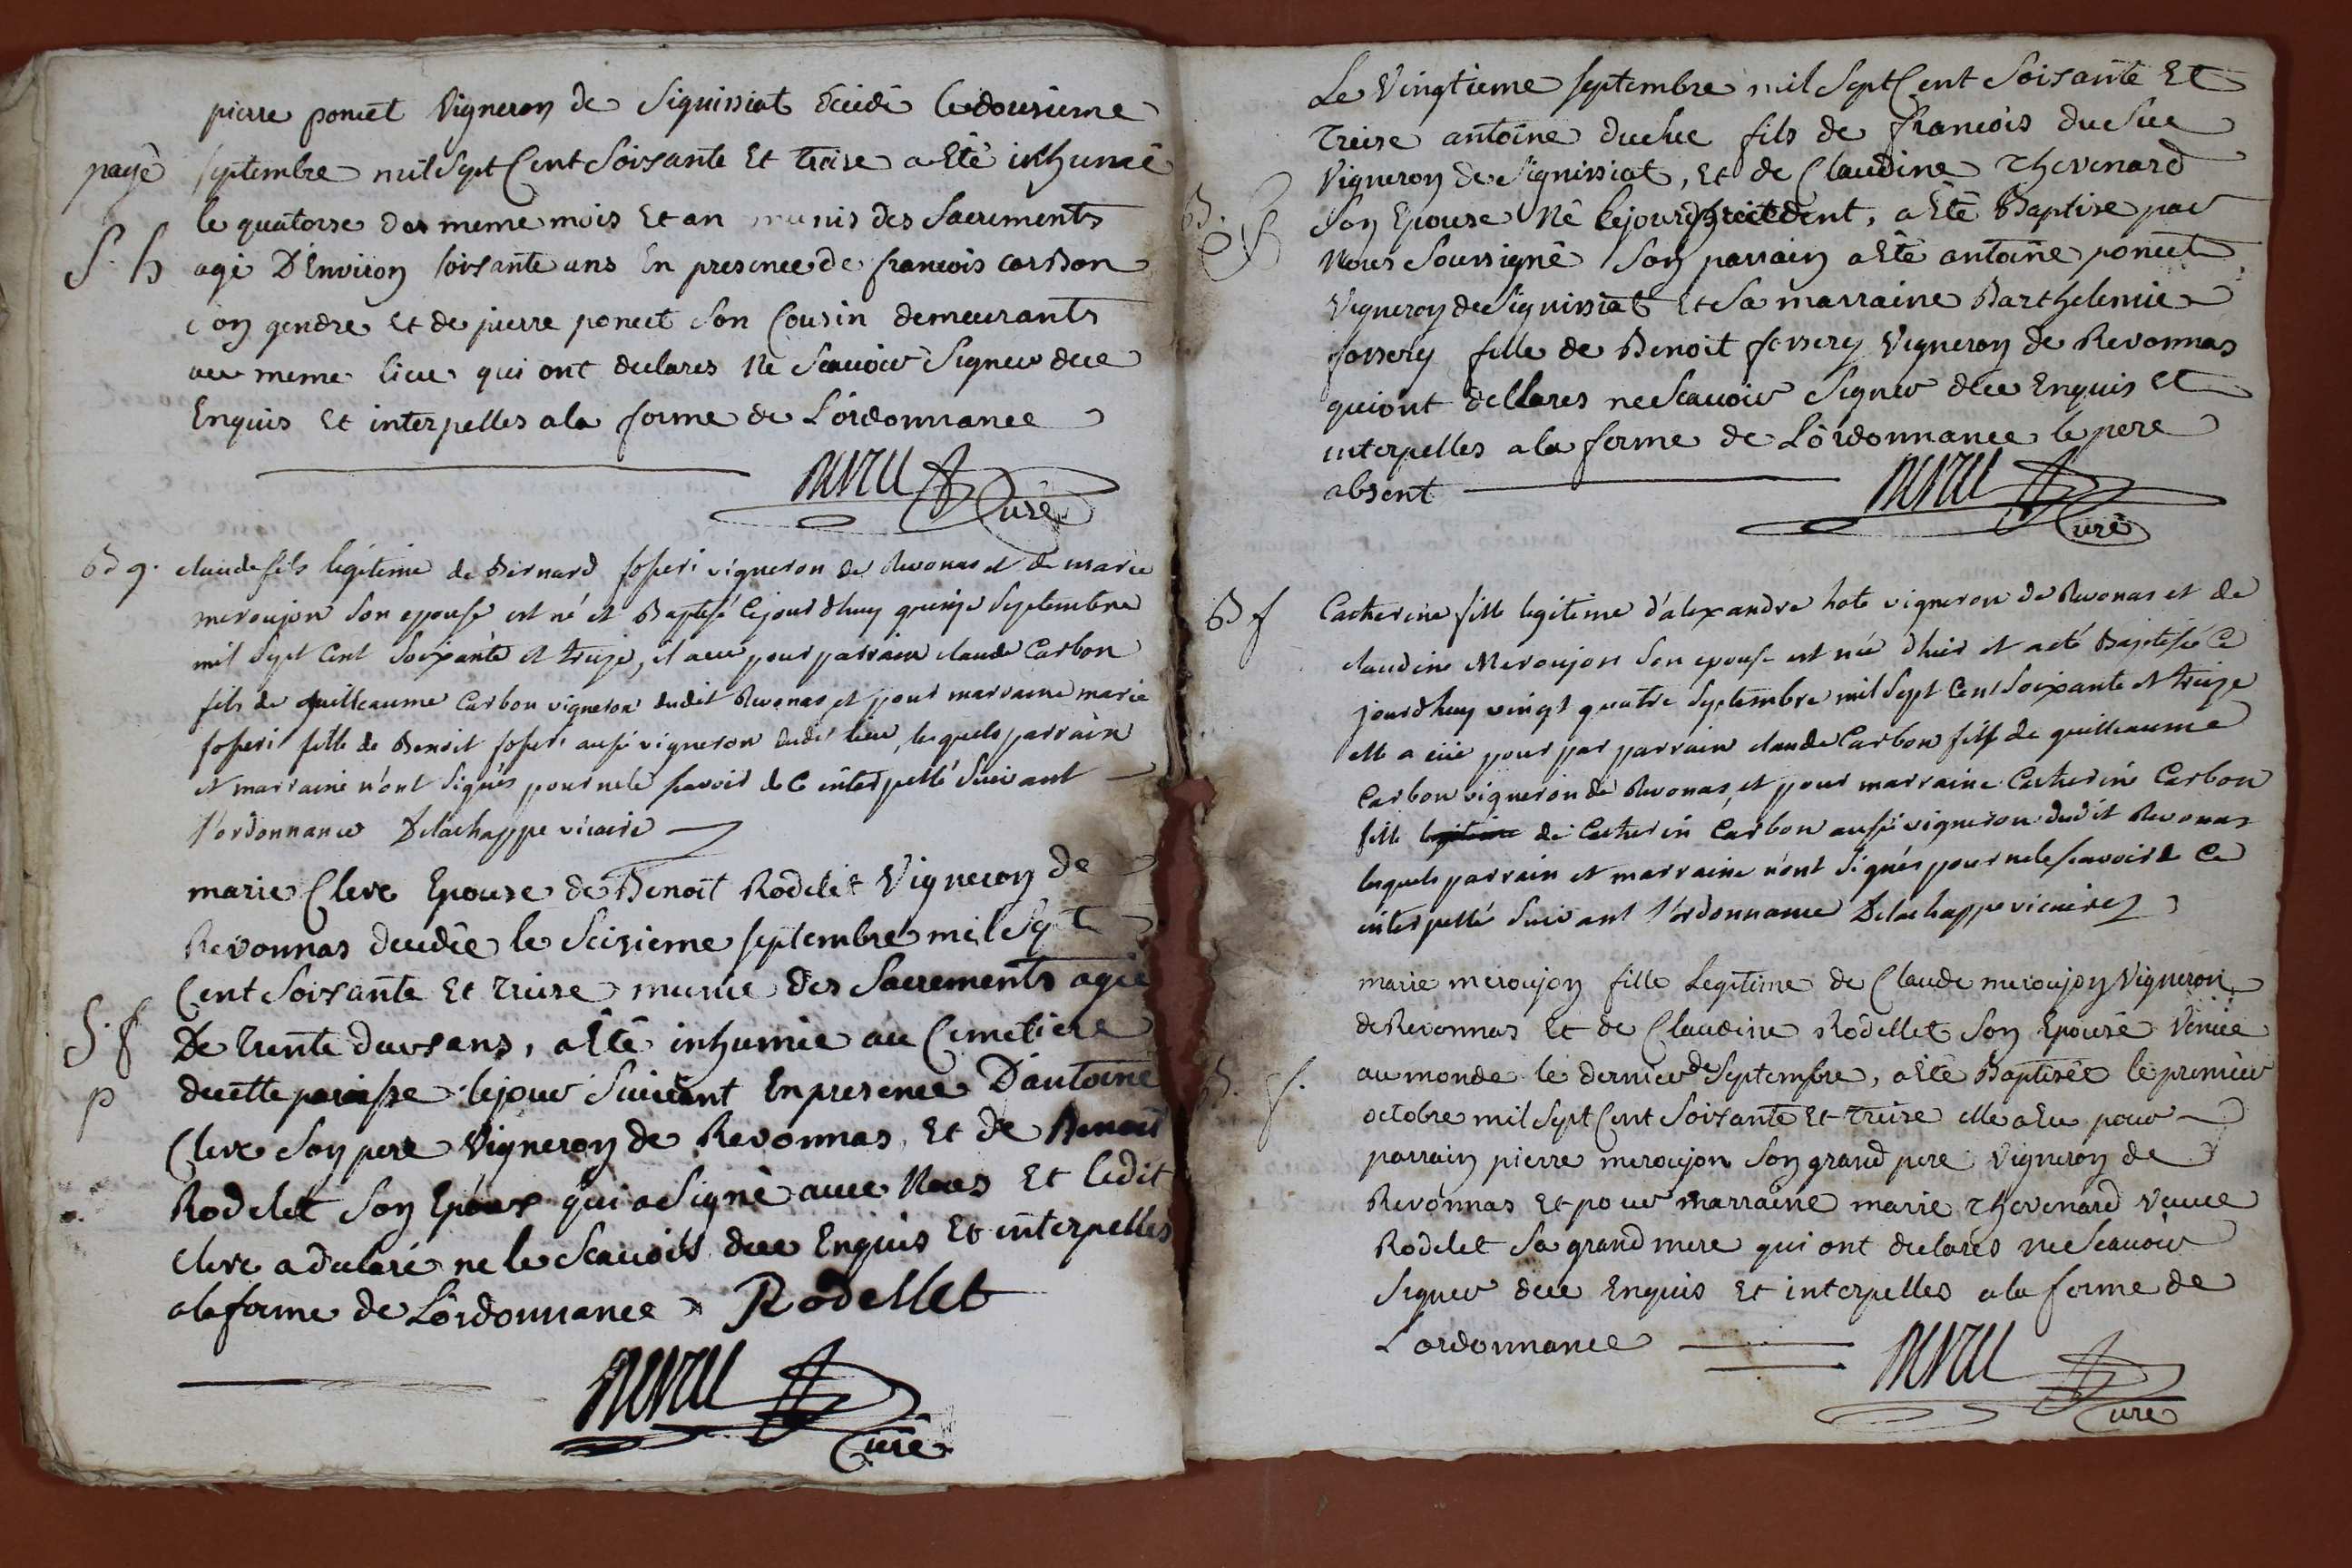 pierre poncet Vigneron de Siquissiat décédé le dousieme
payé septembre mil Sept Cent Soisante Et treise a Eté inhumé
le quatorse des meme mois Et an munis des Sacrements
S. h agé D'Environ soisante ans En presence de francois carbon
son gendre Et de pierre poncet Son Cousin demeurants
au meme lieu qui ont declares Ne Scauoir Signer dece
Enquis Et interpelles a la forme de L'ordonnance
Curé
B g. claude fils légitime de Bernard foseri vigneron de Revonas et de marie
meroujon son epouse est né et Baptisé cejourdhuy quinze Septembre
mil Sept Cent Soixante et treize, il a eu pour parrain claude Carbon
fils de guilleaume Carbon vigneron dudit Revonas et pour marraine marie
foseri fille de Benoit foseri aussi vigneron dudit lieu, lesquels parrain
et marraine n'ont Signés pour ne le scavoir de ce interpellé Suivant
l'ordonnance Delachappe vicaire
marie Clere Epouse de Benoit Rodelet Vigneron de
Revonnas decedée le Seisieme septembre mil Sept
Cent Soisante Et treise munie des Sacrements agée
S. f De trente deux ans, a Eté inhumée au Cimetiere
p decette paroisse le jour Suivant En presence D'antoine
Clere Son pere Vigneron de Revonnas, Et de Benoit
Rodelet Son Epoux qui a Signé avec Nous Et ledit
clere a declaré ne le Scauoir dece Enquis Et interpelles
a la forme de L'ordonnance Rodellet
Curé
Le Vingtieme septembre mil Sept Cent Soisante Et
treise antoine duclue fils de francois
Vigneron de Siquissiat, Et de Claudine Thevenard
B. Son Epouse Né le jour precedent, a Eté Baptise par
Nous Soussigné Son parrain a Eté antoine poncet
Vigneron de Siquissiat Et Sa marraine Barthelemie
fossery fille de Benoit fossery Vigneron de Revonnas
qui ont dellares ne Scauoir Signer dece Enquis Et
interpelles a la forme de L'ordonnance le pere
absent
Curé
B f Catherine fille legitime d'alexandre hote vigneron de Revonas et de
claudine Meroujon Son epouse est née d'hier et a eté Baptisée Ce
jourdhuy vingt quatre Septembre mil Sept Cent Soixante et treize
elle a eüe pour par parrain claude Carbon fils de guilleaume
Carbon vigneron de Revonas, et pour marraine Catherine Carbon
fille legitime de Catherin Carbon aussi vigneron dudit Revonas
lesquels parrain et marraine n'ont Signés pour ne le scavoir de Ce
interpellé Suivant l'ordonnance Delachappe vicaire
marie meroujon fille Legitime de Claude meroujon Vigneron
de Revonnas Et de Claudine Rodellet Son Epouse Venüe
B. f. au monde le dernier de Septembre, a Eté Baptisée le premier
octobre mil Sept Cent Soisante Et treise elle a Eu pour
parrain pierre meroujon Son grand pere Vigneron de
Revonnas Et pour marraine marie Thevenard Veuve
Rodelet Sa grand mere qui ont declares ne Scauoir
Signer dece Enquis Et interpelles a la forme de
L'ordonnance
Curé